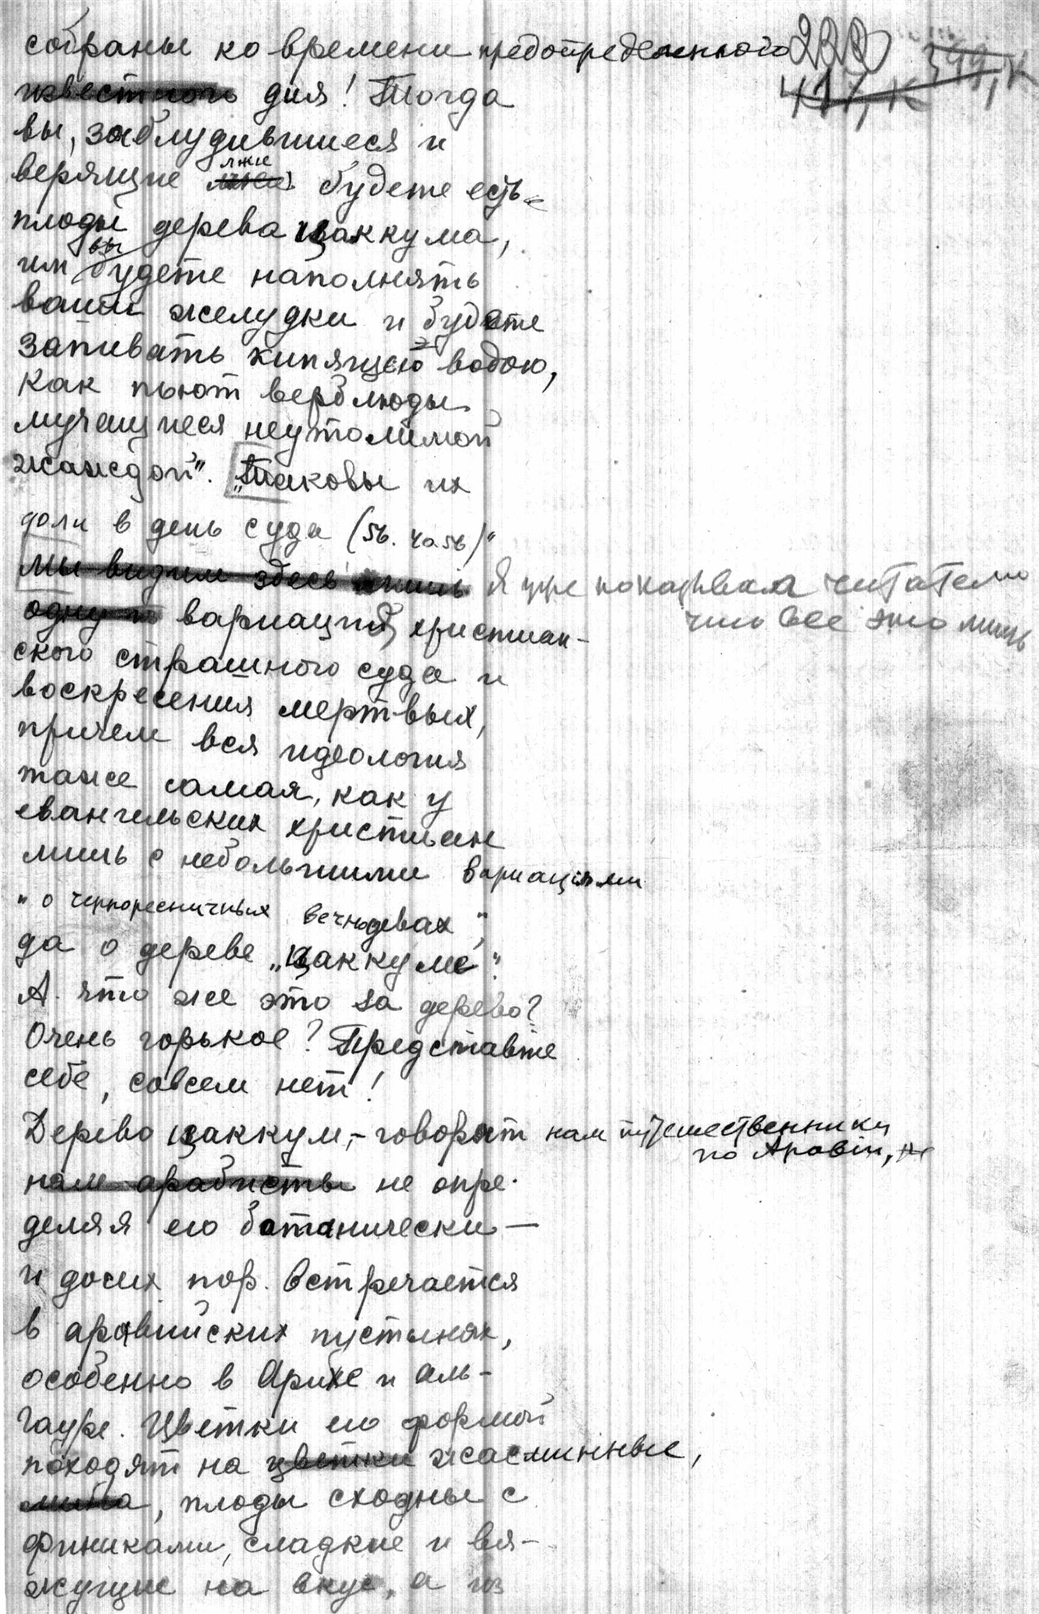 собраны ко времени предопределенного
известного дня! Тогда
вы, заблудившиеся и
верящие лжи будете есть
плоды дерева цаккума,
им вы будете наполнять
ваши желудки и будете
запивать кипящею водою,
как пьют верблюды
мучащиеся неутолимой
жаждой". "Таковы их
доли в день суда (56. 40 56)"
мы видим здесь лишь Я уже показывал читателю
что все это лишь
одну из вариаций христиан-
ского страшного суда и
воскресения мертвых,
причем вся идеология
таже самая, как у
евангельских христиан
лишь с небольшими вариациями
"о черноресничных вечнодевах",
да о дереве „цаккуме".
А что же это за дерево?
Очень горькое? Представте
себе, совсем нет!
Дерево цаккум, – говорят нам путешественники
по Аравии,
нам арабисты не опре-
деляя его ботанически —
и досих пор встречается
в аравийских пустынях,
особенно в Арихе и аль-
Гауре. Цветки его формой
походят на цветки жасминные,
плоды сходны с
финиками, сладкие и вя-
жущие на вкус, а из